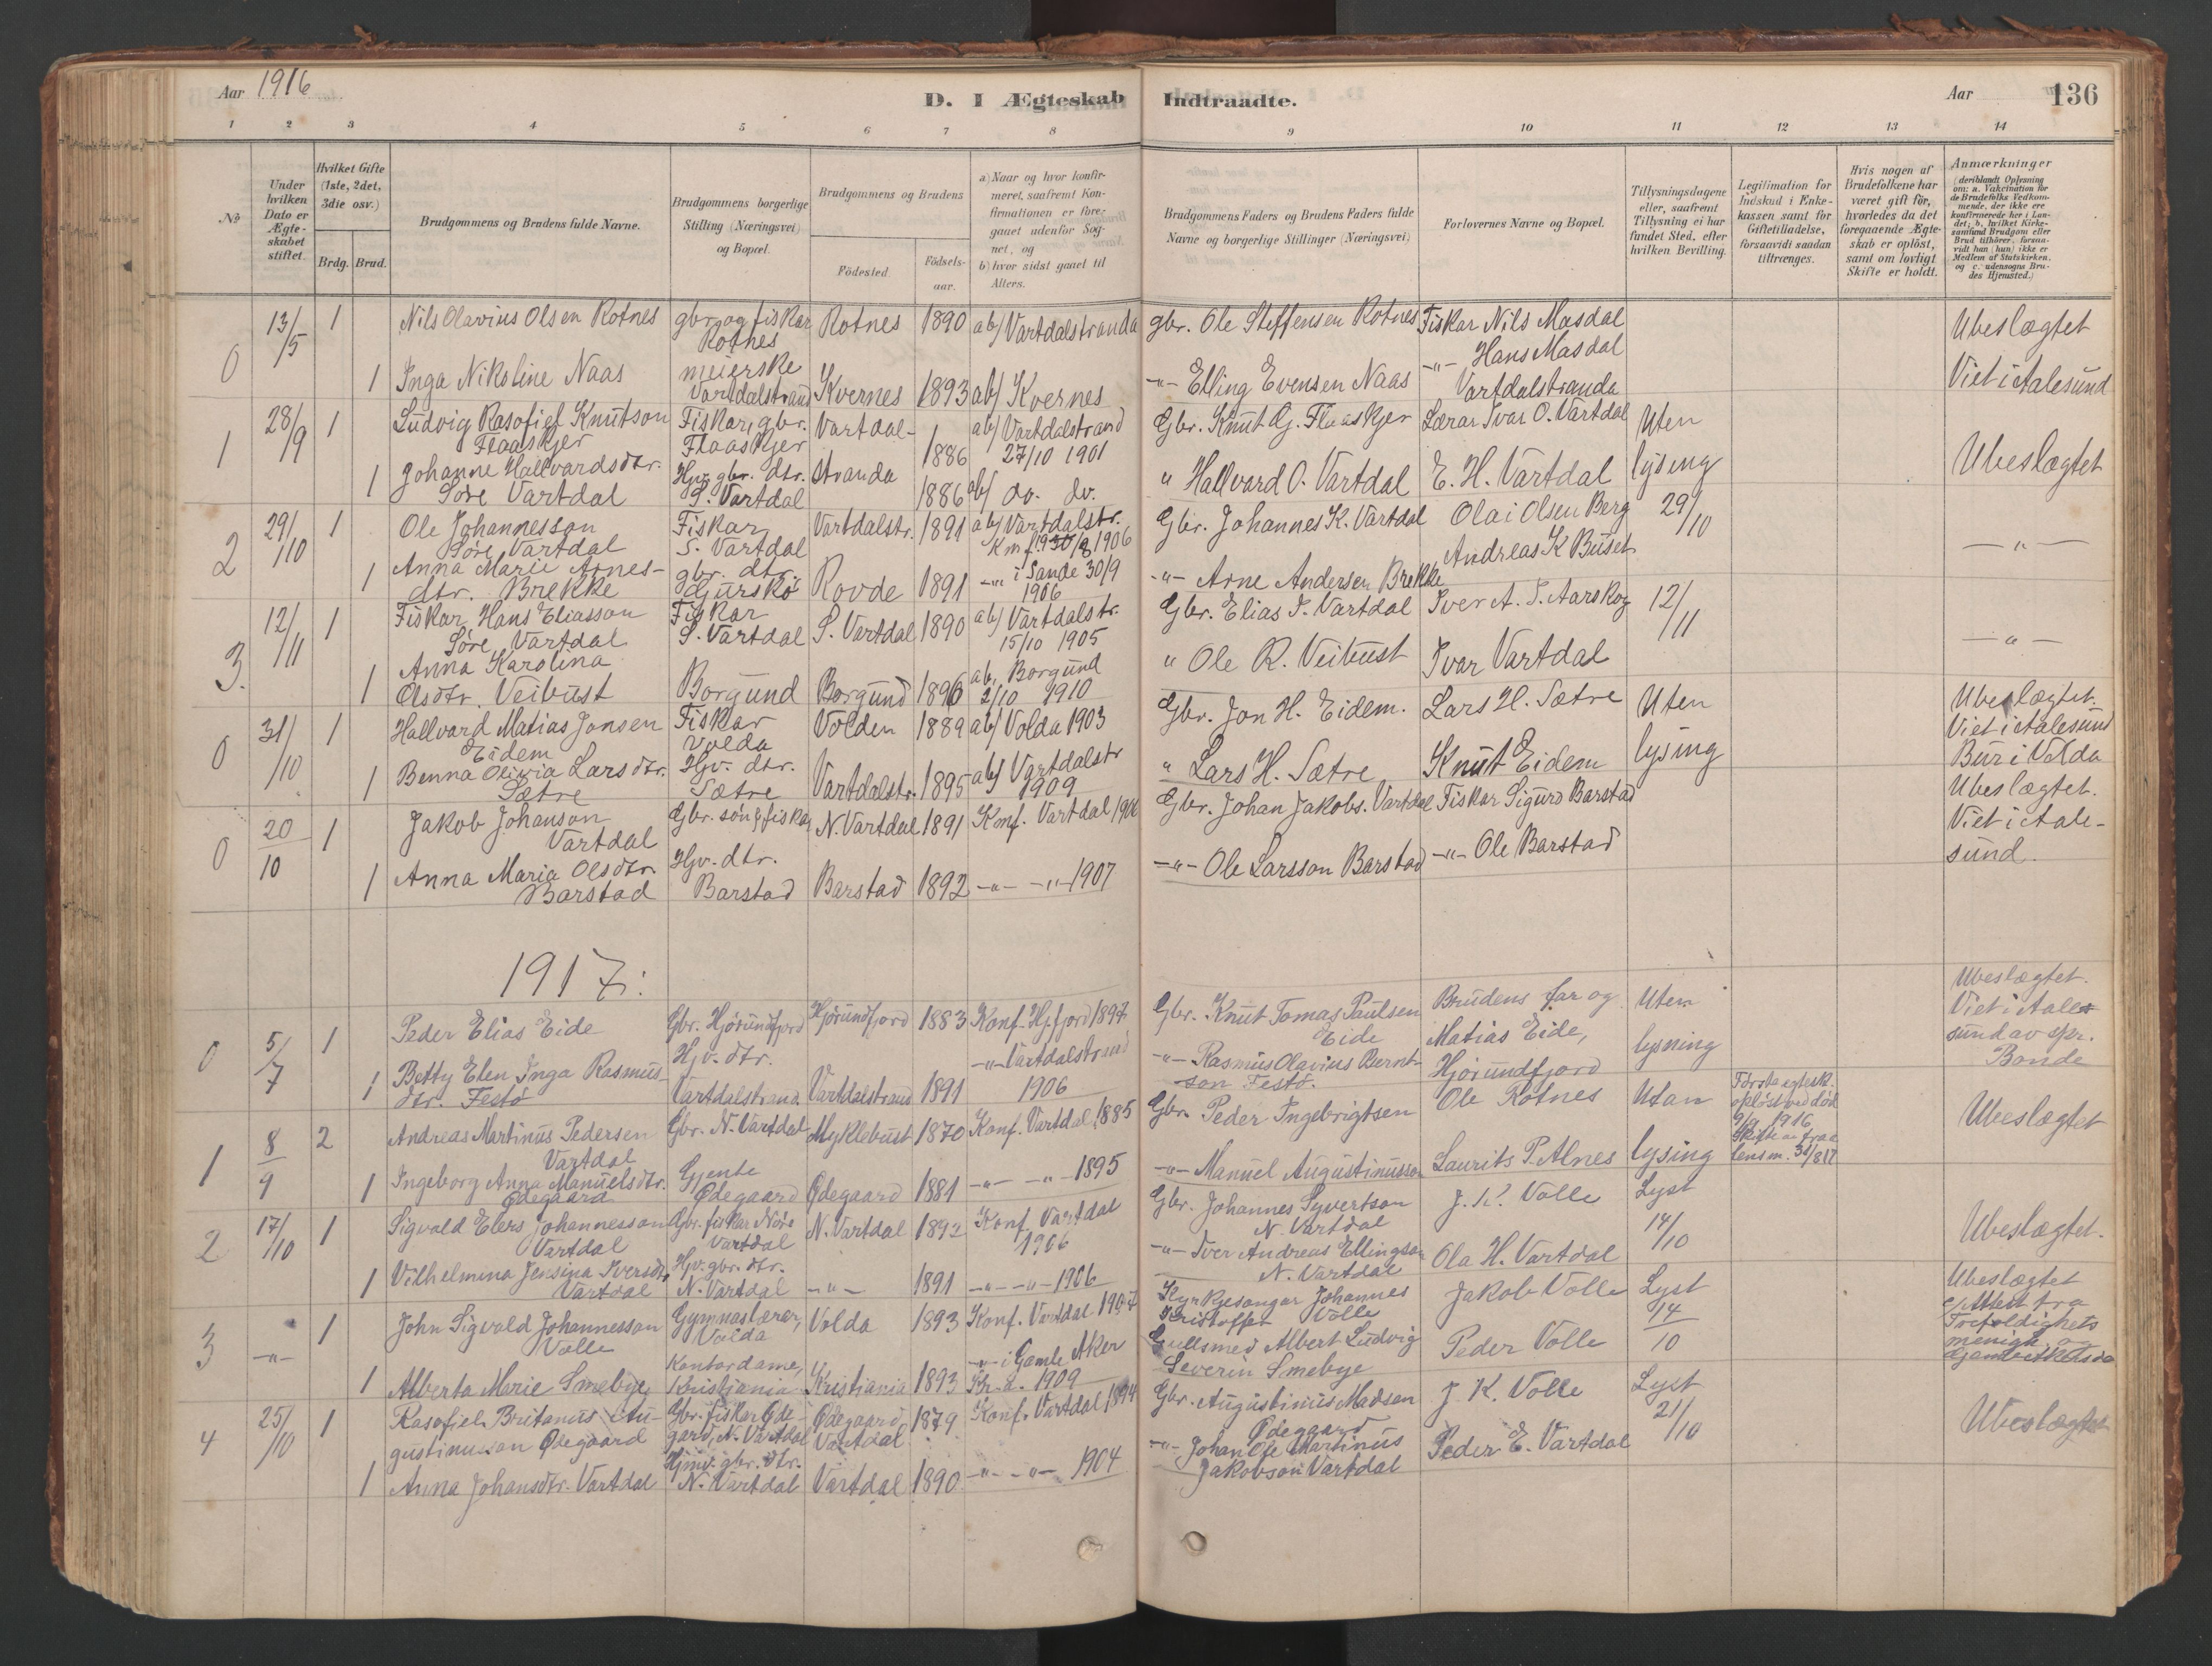 Aar 1916
D. I Ægteskab Indtraadte.
Aar
136
1 2 3 4 5 6 7 8 9 10 11 12 13 14
No
Under hvilken Dato er Ægte-skabet stiftet.
Hvilket Gifte (1ste, 2det, 3die osv.)
Brdg. Brud.
Brudgommens og Brudens fulde Navne.
Brudgommens borgerlige Stilling (Næringsvei) og Bopæl.
Brudgommens og Brudens
Födested
Födsels-aar.
a) Naar og hvor konfir-meret, saafremt Kon-firmationen er fore-gaaet udenfor Sog-net, og
b) hvor sidst gaaet til Alters.
Brudgommens Faders og Brudens Faders fulde Navne og borgerlige Stillinger (Næringsvei)
Forlovernes Navne og Bopæl.
Tillysningsdagene eller, saafremt Tillysning ei har fundet Sted, efter hvilken Bevilling.
Legitimation for Indskud i Enke-kassen samt for Giftetilladelse, forsaavidt saadan tiltrænges.
Hvis nogen af Brudefolkene har været gift för, hvorledes da det foregaaende Ægte-skab er oplöst, samt om lovligt Skifte er holdt.
Anmærkninger (deriblandt Oplysning om: a. Vakcination for de Brudefolks Vedkom-mende, der ikke ere konfirmerede her i Lan-det; b. hvilket Kirke-samfund Brudgom eller Brud tilhörer, forsaa-vidt han (hun) ikke er Medlem af Statskirken, og c. udensogns Bru-des Hjemsted.)
0 13/5 1 Nils Olavius Olsen Rotnes gbr. og fiskar Rotnes Rotnes 1890 ab/ Vartdalstranda gbr. Ole Steffensen Rotnes Fiskar Nils Masdal Ubeslægtet
1 Inga Nikoline Naas meierske Vartdalstrand Kvernes 1893 ab/ Kvernes -"- Elling Evensen Naas -"- Hans Masdal Vartdalstranda Viet i Aalesund
1 28/9 1 Ludvig Rasofiel Knutson Flaaskjer Fiskar, gbr. Flaaskjer Vartdal- 1886 ab/ Vartdalstrand 27/10 1901 Gbr. Knut G. Flaaskjer Lærar Ivar O. Vartdal Uten
1 Johanne Hallvardsdtr. Søre Vartdal Hjv. gbr. dtr. S. Vartdal stranda 1886 ab/ do. do. " Hallvard O. Vartdal E. H. Vartdal lysing Ubeslægtet
2 29/10 1 Ole Johannesson Søre Vartdal Fiskar S. Vartdal Vartdalstr. 1891 ab/ Vartdalstr. 1906 Gbr. Johannes K. Vartdal Olai Olsen Berg 29/10
1 Anna Marie Arnes-dtr. Brekke gbr. dtr. Gjurskö Rovde 1891 -"- i Sande 30/9 1906 -"- Arne Andersen Brekke Andreas K Buset -"-
3. 12/11 1 Fiskar Hans Eliasson Søre Vartdal Fiskar S. Vartdal S. Vartdal 1890 ab/ Vartdalstr. 15/10 1905 Gbr. Elias I. Vartdal Iver A. S. Aarskog 12/11
1 Anna Karolina Olsdtr. Veibust Borgund Borgund 1896 ab, Borgund 2/10 1910 " Ole R. Veibust Ivar Vartdal -"-
0 31/10 1 Hallvard Matias Jonsen Eidem Fiskar Volda Volden 1889 ab/ Volda 1903 Gbr. Jon H. Eidem. Lars H. Sætre Uten Ubeslægtet. Viet i Aalesund
1 Benna Olivia Larsdtr. Sætre Hjv. dtr. Sætre Vartdalstr. 1895 ab/ Vartdalstr 1909 " Lars H. Sætre Knut Eidem lysing Bur i Volda
0 20/10 1 Jakob Johanson Vartdal Gbr. søn, fiskar N. Vartdal 1891 Konf. Vartdal 1906 Gbr. Johan Jakobs. Vartdal Fiskar Sigurd Barstad Ubeslægtet. Viet i Aale-sund.
1 Anna Maria Olsdtr. Barstad Hjv. dtr. Barstad Barstad 1892 -"- -"- 1907 -"- Ole Larsson Barstad -"- Ole Barstad
1917:
0 5/7 1 Peder Elias Eide Gbr. Hjørundfjord Hjørundfjord 1883 Konf. Hj.fjord 1897 Gbr. Knut Tomas Paulsen Eide Brudens far og Matias Eide, Uten Ubeslægtet. Viet i Aale-sund av spr. Bonde
1 Betty Elen Inga Rasmus-dtr. Festø Hjv. dtr. Vartdalstrand Vartdalstrand 1891 -"- Vartdalstrand 1906 -"- Rasmus Olavius Bernt-son Festø. Hjørundfjord lysning
1 8/9 2 Andreas Martinus Pedersen Vartdal Gbr. N. Vartdal Myklebust 1870 Konf. Vartdal 1885 Gbr. Peder Ingebrigtsen Ole Rotnes Utan Første egtesk. opløst ved død 9/9 1916 Skifte fraa lensm. 31/8 17 Ubeslægtet
1 Ingeborg Anna Manuelsdtr. Ødegaard Gjente Ødegaard Ødegaard 1881 -"- -"- 1895 -"- Manuel Augustinusson Laurits P. Alnes lysing
2 17/10 1 Sigvald Elers Johannesson Vartdal Gbr. fiskar Nore Vartdal N. Vartdal 1892 Konf. Vartdal 1906 Gbr. Johannes Syvertson N. Vartdal J. K. Volle Lyst 14/10 Ubeslægtet.
1 Vilhelmina Jensina Iversdtr Vartdal Hjv. gbr. dtr. N. Vartdal -"- 1891 -"- -"- 1906 -"- Iver Andreas Ellingson N. Vartdal Ola H. Vartdal
3 -"- 1 John Sigvald Johannesson Volle Gymnaslærar, Volda Volda 1893 Konf. Vartdal 1907 Kyrkjesongar Johannes Kristoffer Volle Jakob Volle Lyst 14/10 Ubeslægtet Attest fra Trefoldighets menigh.
1 Alberta Marie Smebye Kontordame, Kristiania Kristiania 1893 -"- i Gamle Aker Kr.a. 1909 Gullsmed Albert Ludvig Severin Smebye Peder Volle
4 25/10 1 Rasofiel Britanus Au-gustinusson Ødegaard Gbr. fiskar Øde-gard, N. Vartdal Ødegaard Vartdal 1879 Konf. Vartdal 1894 Gbr. Augustinus Madsen Ødegaard J. K. Volle Lyst 21/10 Ubeslægtet
1 Anna Johansdtr. Vartdal Hjmv. gbr. dtr. N. Vartdal Vartdal 1890 -"- -"- 1904 -"- Johan Ole Martinus Jakobson Vartdal Peder E. Vartdal